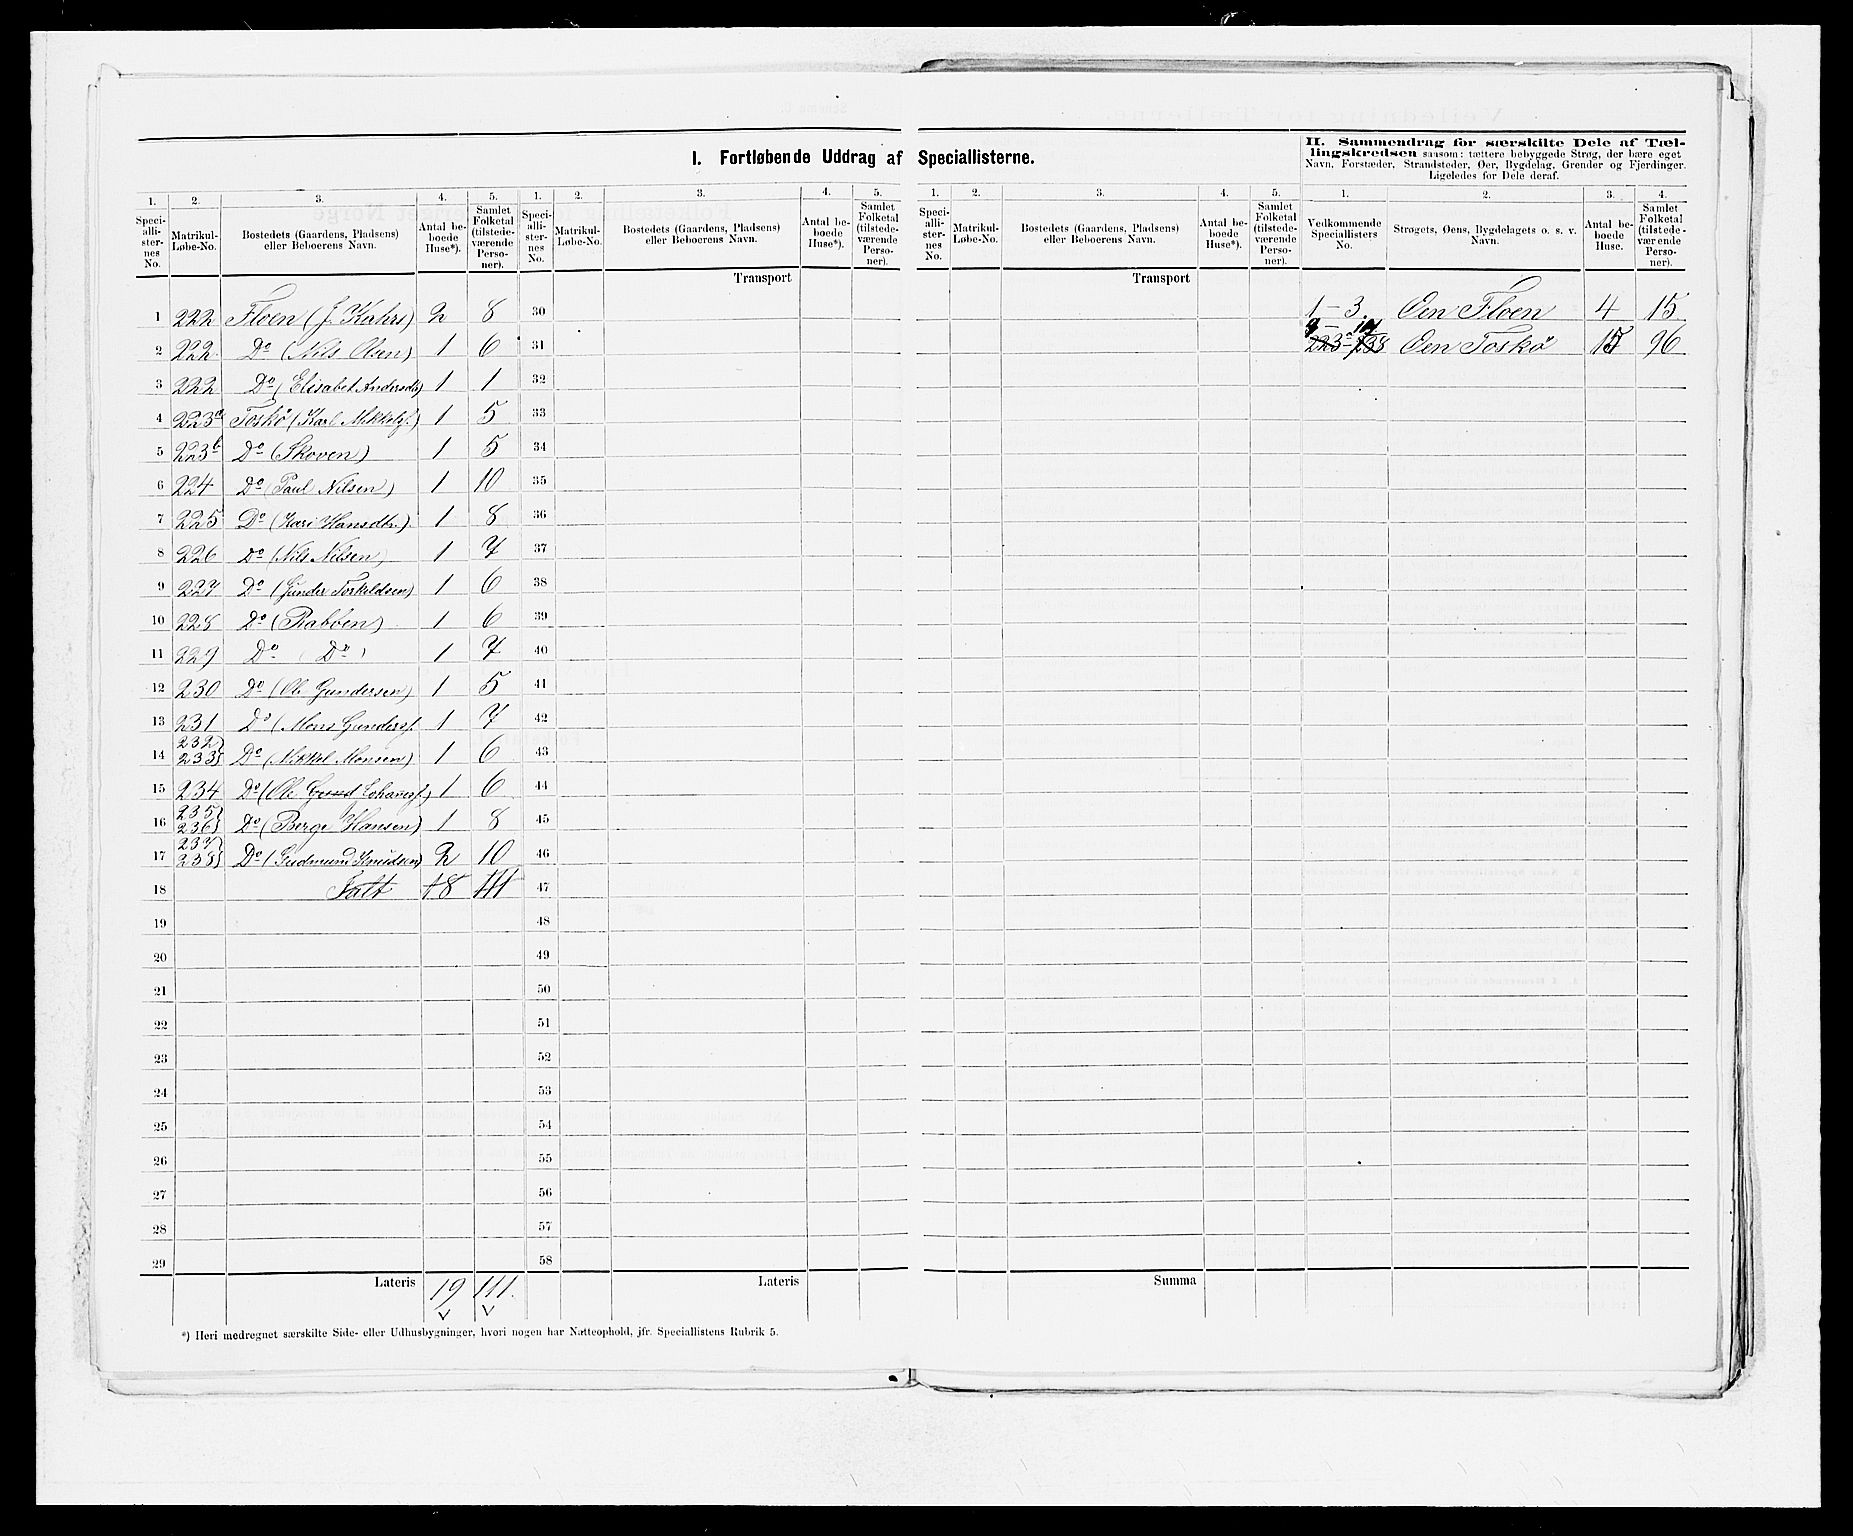 I. Fortløbende Uddrag af Speciallisterne.
II. Sammendrag for særskilte Dele af Tæl-
lingskredsen saasom: tættere bebyggede Strøg, der bære eget
Navn, Forstæder, Strandsteder, Øer, Bygdelag, Grender og Fjerdinger.
Ligeledes for Dele deraf.
1. 2. 3. 4. 5. 1. 2. 3. 4. 5. 1. 2. 3. 4. 5. 1. 2. 3. 4.
Speci-
alli-
ster-
nes
No.
Matrikul-
Løbe-No.
Bostedets (Gaardens, Pladsens)
eller Beboerens Navn.
Antal be-
boede
Huse*).
Samlet
Folketal
(tilstede-
værende
Perso-
ner).
Speci-
alli-
ster-
nes
No.
Matrikul-
Løbe-No.
Bostedets (Gaardens, Pladsens)
eller Beboerens Navn.
Antal be-
boede
Huse*).
Samlet
Folketal
(tilstede-
værende
Perso-
ner).
Speci-
alli-
ster-
nes
No.
Matrikul-
Løbe-No.
Bostedets (Gaardens, Pladsens)
eller Beboerens Navn.
Antal be-
boede
Huse*).
Samlet
Folketal
(tilstede-
værende
Perso-
ner).
Vedkommende
Speciallisters
No.
Strøgets, Øens, Bygdelagets o. s. v.
Navn.
Antal be-
boede
Huse.
Samlet
Folketal
(tilstede-
værende
Perso-
ner).
Transport Transport
1 222 Floen (J. Kahrs) 2 8 30 1 – 3. Øen Floen 4 15
2 222 Do (Nils Olsen) 1 6 31 Øen Toskø 15 96
3 222 Do (Elisabet Andersdtr) 1 1 32
4 223a Toskø (Karl Mikkels.) 1 5 33
5 223b Do (Skoven) 1 5 34
6 224 Do (Paul Nilsen) 1 10 35
7 225 Do (Kari Hansdtr.) 1 8 36
8 226 Do (Nils Nilsen) 1 7 37
9 227 Do (Gunder Torkeldsen) 1 6 38
10 228 Do (Rabben) 1 6 39
11 229 Do (Do) 1 7 40
12 230 Do (Ole Gundersen) 1 5 41
13 231 Do (Mons Gunders. 1 7 42
14 232 233 Do (Mikkel Monsen) 1 6 43
15 234 Do (Ole Johanes.) 1 6 44
16 235 236 Do (Berge Hansen) 1 8 45
17 237 238 Do (Gudmund Knudsen) 2 10 46
18 Ialt 18 111 47
19 48
20 49
21 50
22 51
23 52
24 53
25 54
26 55
27 56
28 57
29 58
Lateris 19 111. Lateris Summa
*) Heri medregnet særskilte Side- eller Udhusbygninger, hvori nogen har Natteophold, jfr. Speciallistens Rubrik 5.